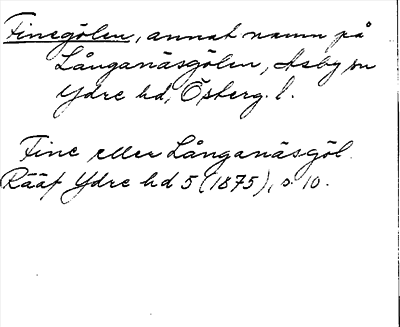 Finegölen, annat namn på
Långanäsgölen, Asby sn
Ydre hd, Österg. l.
Fine eller Långanäsgöl.
Rääf Ydre hd 5 (1875), s. 10.